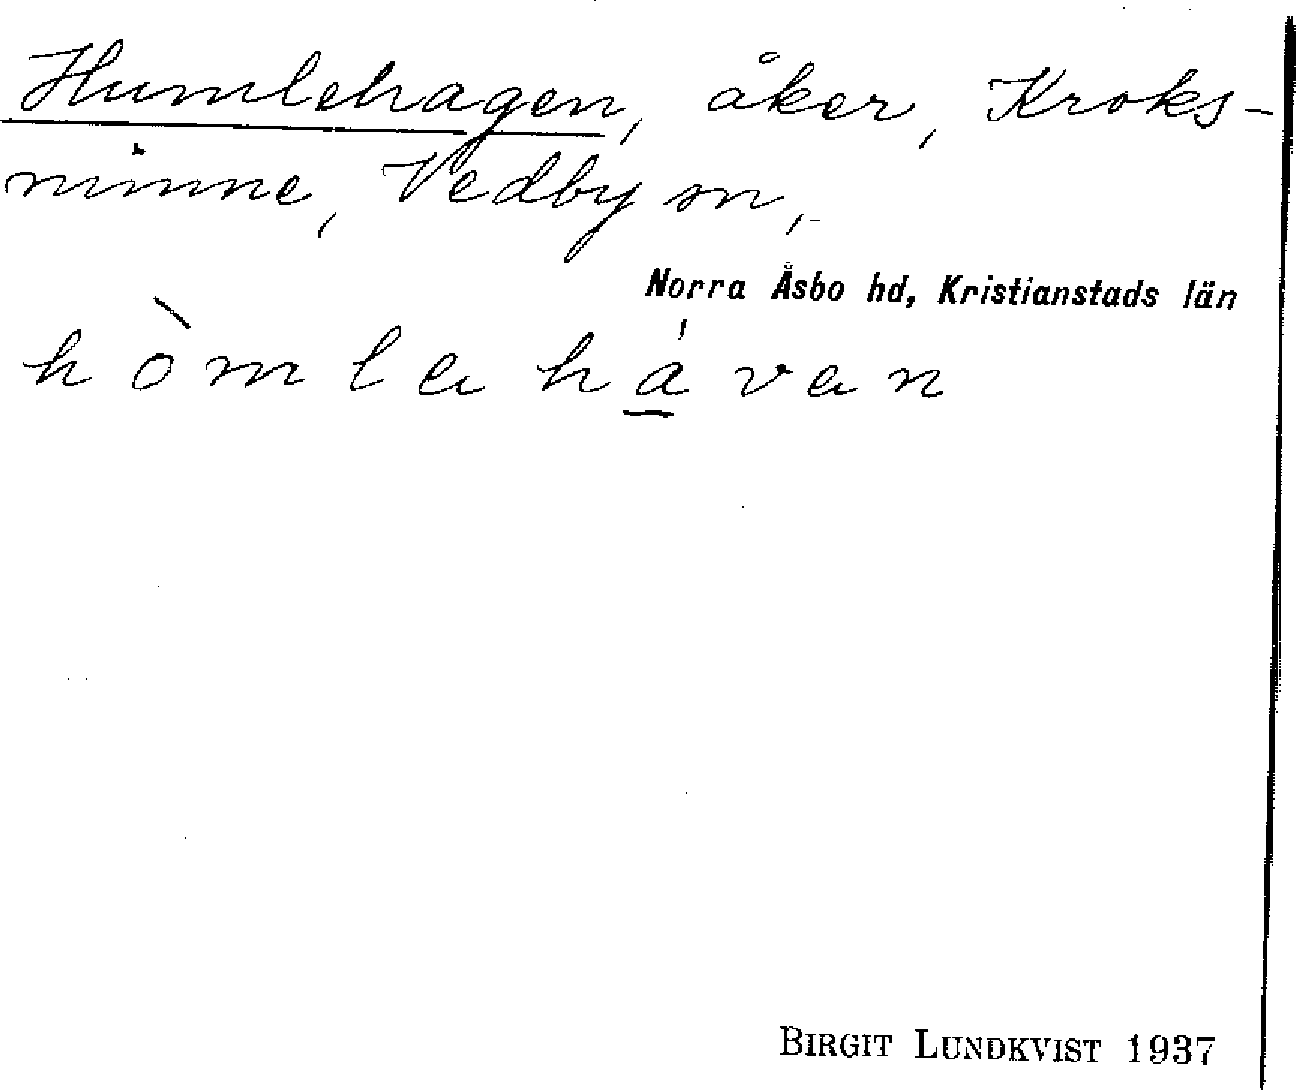 Humlehagen, åker, Kroks-
minne, Vedby sn,
Norra Åsbo hd, Kristianstads län
hòmlahávan
BIRGIT LUNDKVIST 1937